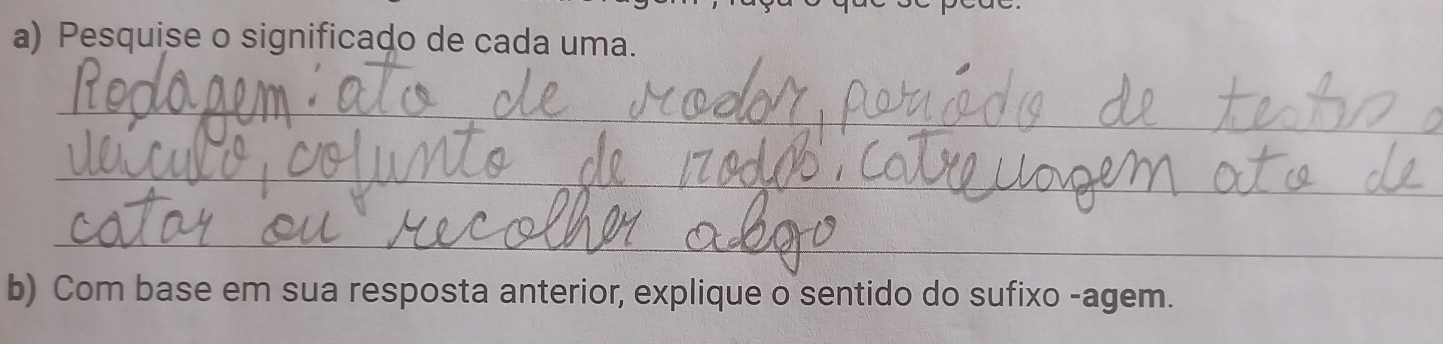 a) Pesquise o significado de cada uma.
Rodagem: ato de rodar, período de testo
veículo, cojunto de rodas. Catre uagem ato de
catar ou recolher algo
b) Com base em sua resposta anterior, explique o sentido do sufixo -agem.